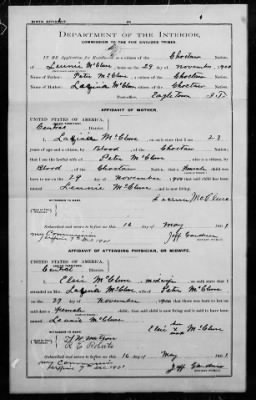 BIRTH AFFIDAVIT
DEPARTMENT OF THE INTERIOR,
COMMISSION TO THE FIVE CIVILIZED TRIBES.
IN RE Application for Enrollment, as a citizen of the Choctaw Nation,
of Lennie McClure, born on the 29 day of November, 1900
Name of Father: Peter McClure, a citizen of the Choctaw Nation.
Name of Mother: McClure, a citizen of the Choctaw Nation.
Eagletown I.T.
AFFIDAVIT OF MOTHER.
UNITED STATES OF AMERICA,
Central District.
I, McClure, on oath state that I am 23
years of age and a citizen, by Blood, of the Choctaw Nation;
that I am the lawful wife of Peter McClure, who is a citizen, by
Blood, of the Choctaw Nation; that a female child was
born to me on 29 day of November, 1900, that said child has been
named Lennie McClure, and is now living.
McClure
WITNESSES TO MARK:
Subscribed and sworn to before me this 16 day of May, 1901
My Commission
Expires 7 Dec 1901
Jeff Gardner
NOTARY PUBLIC.
AFFIDAVIT OF ATTENDING PHYSICIAN, OR MIDWIFE.
UNITED STATES OF AMERICA,
Central District.
I, McClure, a midwife, on oath state that I
attended on Mrs. McClure, wife of Peter McClure
on the 29 day of November, 1900; that there was born to her on
said date a female child; that said child is now living and is said to have
been named Lennie McClure
her
McClure
mark
WITNESSES TO MARK:
Watson
Subscribed and sworn to before me this 16 day of May, 1901
My Commission
Expires 7 Dec 1901
Jeff Gardner
NOTARY PUBLIC.